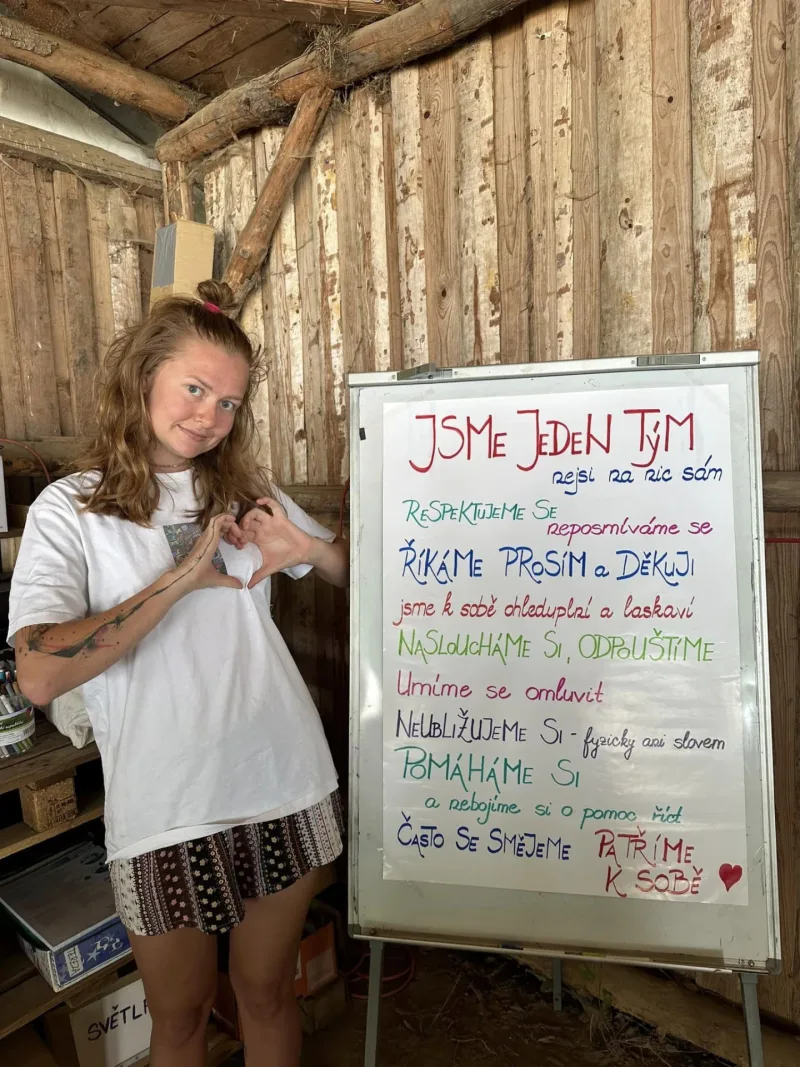 JSME JEDEN TÝM
nejsi na nic sám
RESPEKTUJEME SE
neposmíváme se
ŘÍKÁME PROSÍM a DĚKUJI
jsme k sobě ohleduplní a laskaví
NASLOUCHÁME SI, ODPOUŠTÍME
Umíme se omluvit
NEUBLIŽUJEME SI - fyzicky ani slovem
POMÁHÁME SI
a nebojíme si o pomoc říct
ČASTO SE SMĚJEME
PATŘÍME
K SOBĚ
SVĚTL